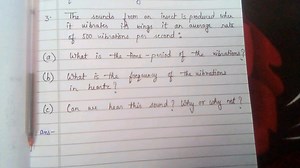 3. The sounds from an insect is produced when
it vibrates its wings it an average rate
of 500 vibrations per second.
(a) What is the time-period of the vibrations?
(b) What is the frequency of the vibrations
in heartz?
(c) Can we hear this sound? Why or why not?
ans-